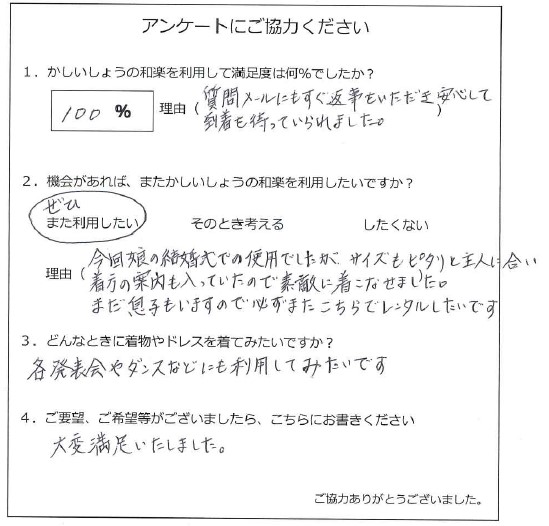 アンケートにご協力ください
1．かしいしょうの和楽を利用して満足度は何%でしたか？
100 %
理由（質問メールにもすぐ返事をいただき安心して
到着も待っていられました。）
2．機会があれば、またかしいしょうの和楽を利用したいですか？
ぜひ
また利用したい そのとき考える したくない
今回娘の結婚式での使用でしたが、サイズもピタリと主人に合い
理由（着方の案内も入っていたので素敵に着こなせました。
まだ息子もいますので必ずまたこちらでレンタルしたいです
3．どんなときに着物やドレスを着てみたいですか？
各発表会やダンスなどにも利用してみたいです
4．ご要望、ご希望等がございましたら、こちらにお書きください
大変満足いたしました。
ご協力ありがとうございました。